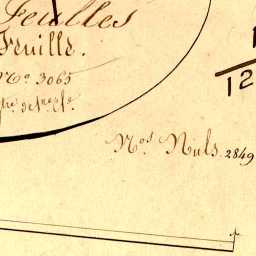 Feuilles
Feuille.
No 3065
1
12
Nos Nuls 2849